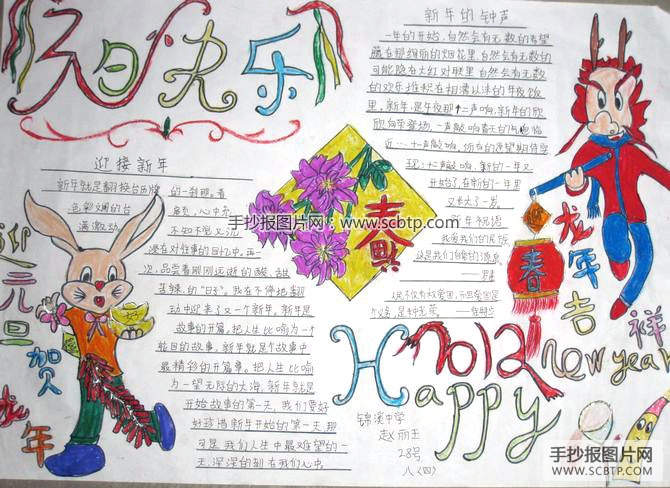 庆日快乐
新年的钟声
一年的开始,自然会有无数的希望
藏在那绚丽的烟花里,自然会有无数的
可能隐在大红对联里,自然会有无数
的欢乐堆积在相满以沫的年夜饭
里。新年,是午夜那个二声响,新年的欣
欣向荣登场,一声敲响春天的气息临
近…十一声敲响,所有的愿望期待实
现;十二声敲响,新的一年又
开始了,在新的一年里
又长大了一岁
新年祝语
我爱我们的民族,
这是我们自信的源泉
迎接新年
新年就是翻换台历牌的一刹那,看
色彩斓的台
满激动
不知不觉又沉
浸在对往事的回忆中,再一
次品尝着刚刚远逝的酸、甜
苦辣,的"日子"。我在不停地翻
动中迎来了又一个新年。新年是
故事的开篇,把人生比喻为一个
能目的故事,新年就是个故事中
最精彩的开篇章。把人生比喻
为一望无际的大海,新年就是
开始故事的第一天,我们要好
好珍惜新年开始的第一天,那
可是我们人生中最又难望的一
天,深深的刻在我们心中
手抄报图片网:www.scbtp.com
春
春
迎元旦
贺
龙年
龙年吉祥
2012
New year
Happy
锦溪中学
赵丽王
28号
八(四)
手抄报图片网
WWW.SCBTP.COM